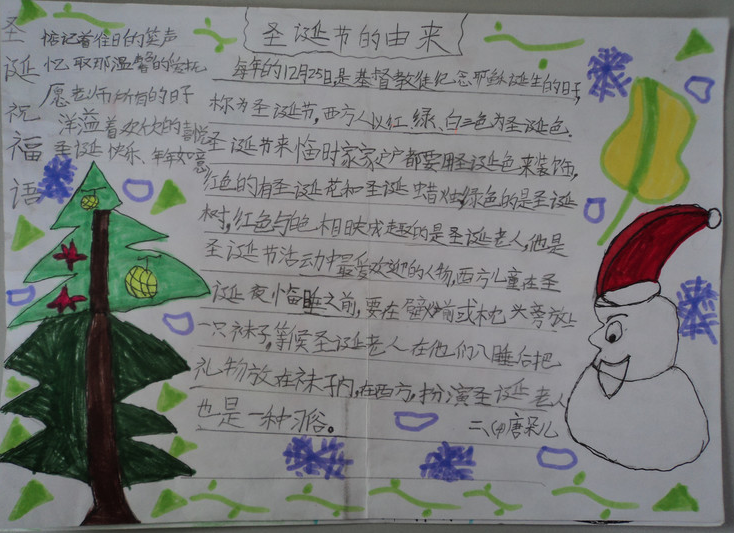 圣诞祝福语
惦记着往日的笑声
忆取那温馨的
愿老师所有的日子
洋溢着欢欣的喜悦
圣诞快乐、年年如意
圣诞节的由来
每年的12月25日,是基督教徒纪念耶稣诞生的日子,
称为圣诞节,西方人以红、绿、白三色为圣诞色,
圣诞节来临时家家户户都要用圣诞色来装饰,
红色的有圣诞花和圣诞蜡烛,绿色的是圣诞
树,红色与白色相映成趣的是圣诞老人,他是
圣诞节活动中最受欢迎的人物,西方儿童在圣
诞夜临睡之前,要在壁炉前或枕头旁放上
一只袜子,等候圣诞老人在他们入睡后把
礼物放在袜子内,在西方,扮演圣诞老人
也是一种习俗。
二、(4)唐朵儿